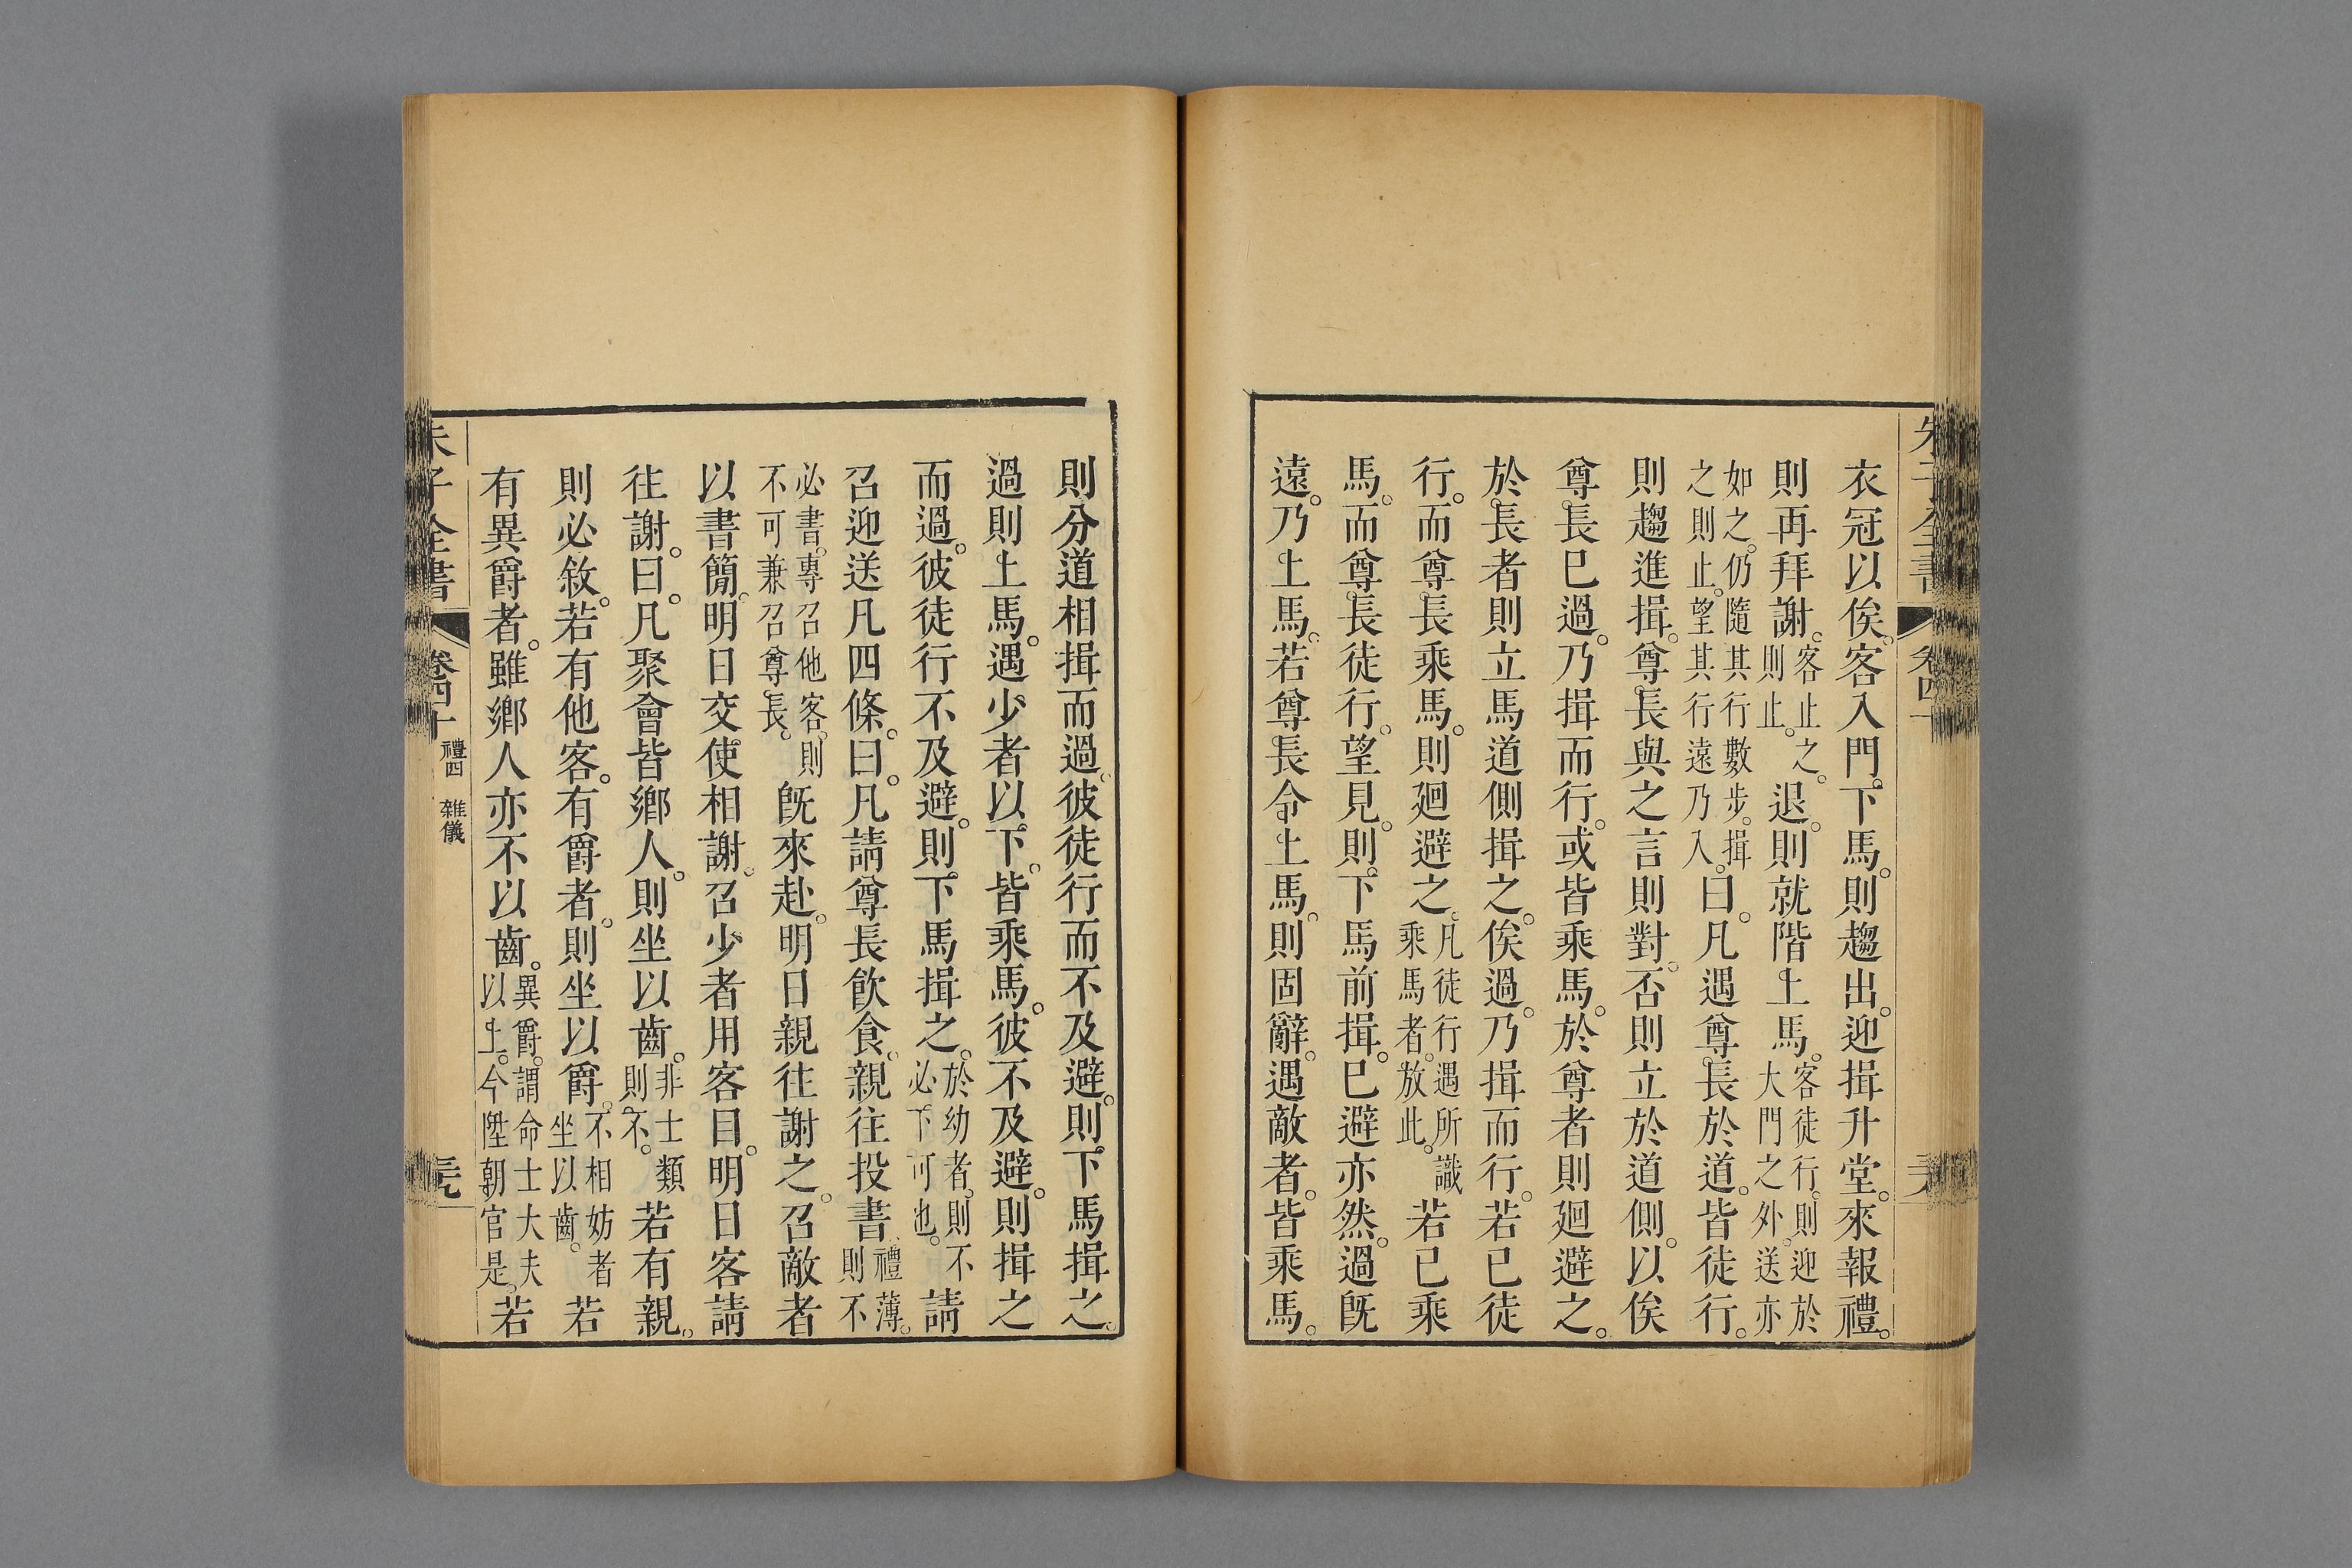 朱子全書 卷四十
衣冠以俟。客入門。下馬。則趨出。迎揖升堂。來報禮。
則再拜謝。客止之。則止。退。則就階上馬。客徒行。則迎於大門之外。送亦
如之。仍隨其行數步。揖之則止。望其行遠乃入。曰。凡遇尊長於道。皆徒行。
則趨進揖。尊長與之言則對。否則立於道側。以俟
尊長已過。乃揖而行。或皆乘馬。於尊者則廻避之。
於長者則立馬道側揖之。俟過。乃揖而行。若已徒
行。而尊長乘馬。則廻避之。凡徒行遇所識乘馬者。放此。若已乘
馬。而尊長徒行。望見。則下馬前揖。已避亦然。過既
遠。乃上馬。若尊長令上馬。則固辭。遇敵者。皆乘馬。
則分道相揖而過。彼徒行而不及避。則下馬揖之。
過則上馬。遇少者以下。皆乘馬。彼不及避。則揖之
而過。彼徒行不及避。則下馬揖之。於幼者。則不必下可也。請
召迎送凡四條。曰。凡請尊長飲食。親往投書。禮薄。則不
必書。專召他客。則不可兼召尊長。既來赴。明日親往謝之。召敵者
以書簡。明日交使相謝。召少者用客目。明日客請
往謝。曰。凡聚會皆鄉人。則坐以齒。非士類則不。若有親。
則必敘。若有他客。有爵者。則坐以爵。不相妨者坐以齒。若
有異爵者。雖鄉人亦不以齒。異爵。謂命士大夫以上。今陞朝官是。若
朱子全書 卷四十 禮四 雜儀 三九